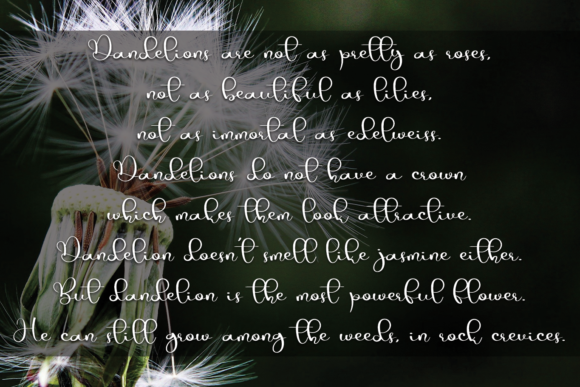 Dandelions are not as pretty as roses,
not as beautiful as lilies,
not as immortal as edelweiss.
Dandelions do not have a crown
which makes them look attractive.
Dandelion doesn't smell like jasmine either.
But dandelion is the most powerful flower.
He can still grow among the weeds, in rock crevices.